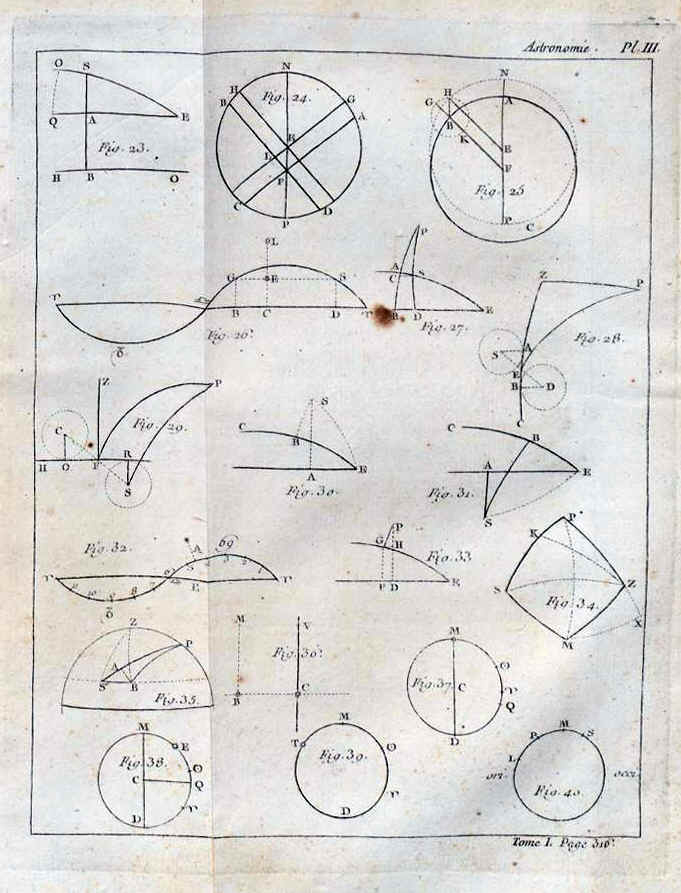 Astronomie. Pl. III.
O S
Q A E
Fig. 23.
H B O
N
H G
B A
Fig. 24.
R
L
F
C D
P
N
H A
G
B
K E
F
Fig. 25
P C
L
G E S
B C D
Fig. 26.
P
A S
C
B D E
Fig. 27.
Z P
Fig. 28.
S A
E
B D
C
Z P
Fig. 29.
C
H O F R
S
S
C
B
A E
Fig. 30.
C B
A E
Fig. 31.
S
Fig. 32.
A 69
S
E
P
G H
Fig. 33
F D E
P
K
S Z
Fig. 34.
M X
Z
A P
S B
Fig. 35.
M V
Fig. 36.
B C
M
Fig. 37.
C
Q
D
M
E
Fig. 38.
C Q
D
T M
Fig. 39.
D
P M S
L
ori. occi.
Fig. 40.
Tome I. Page 316.